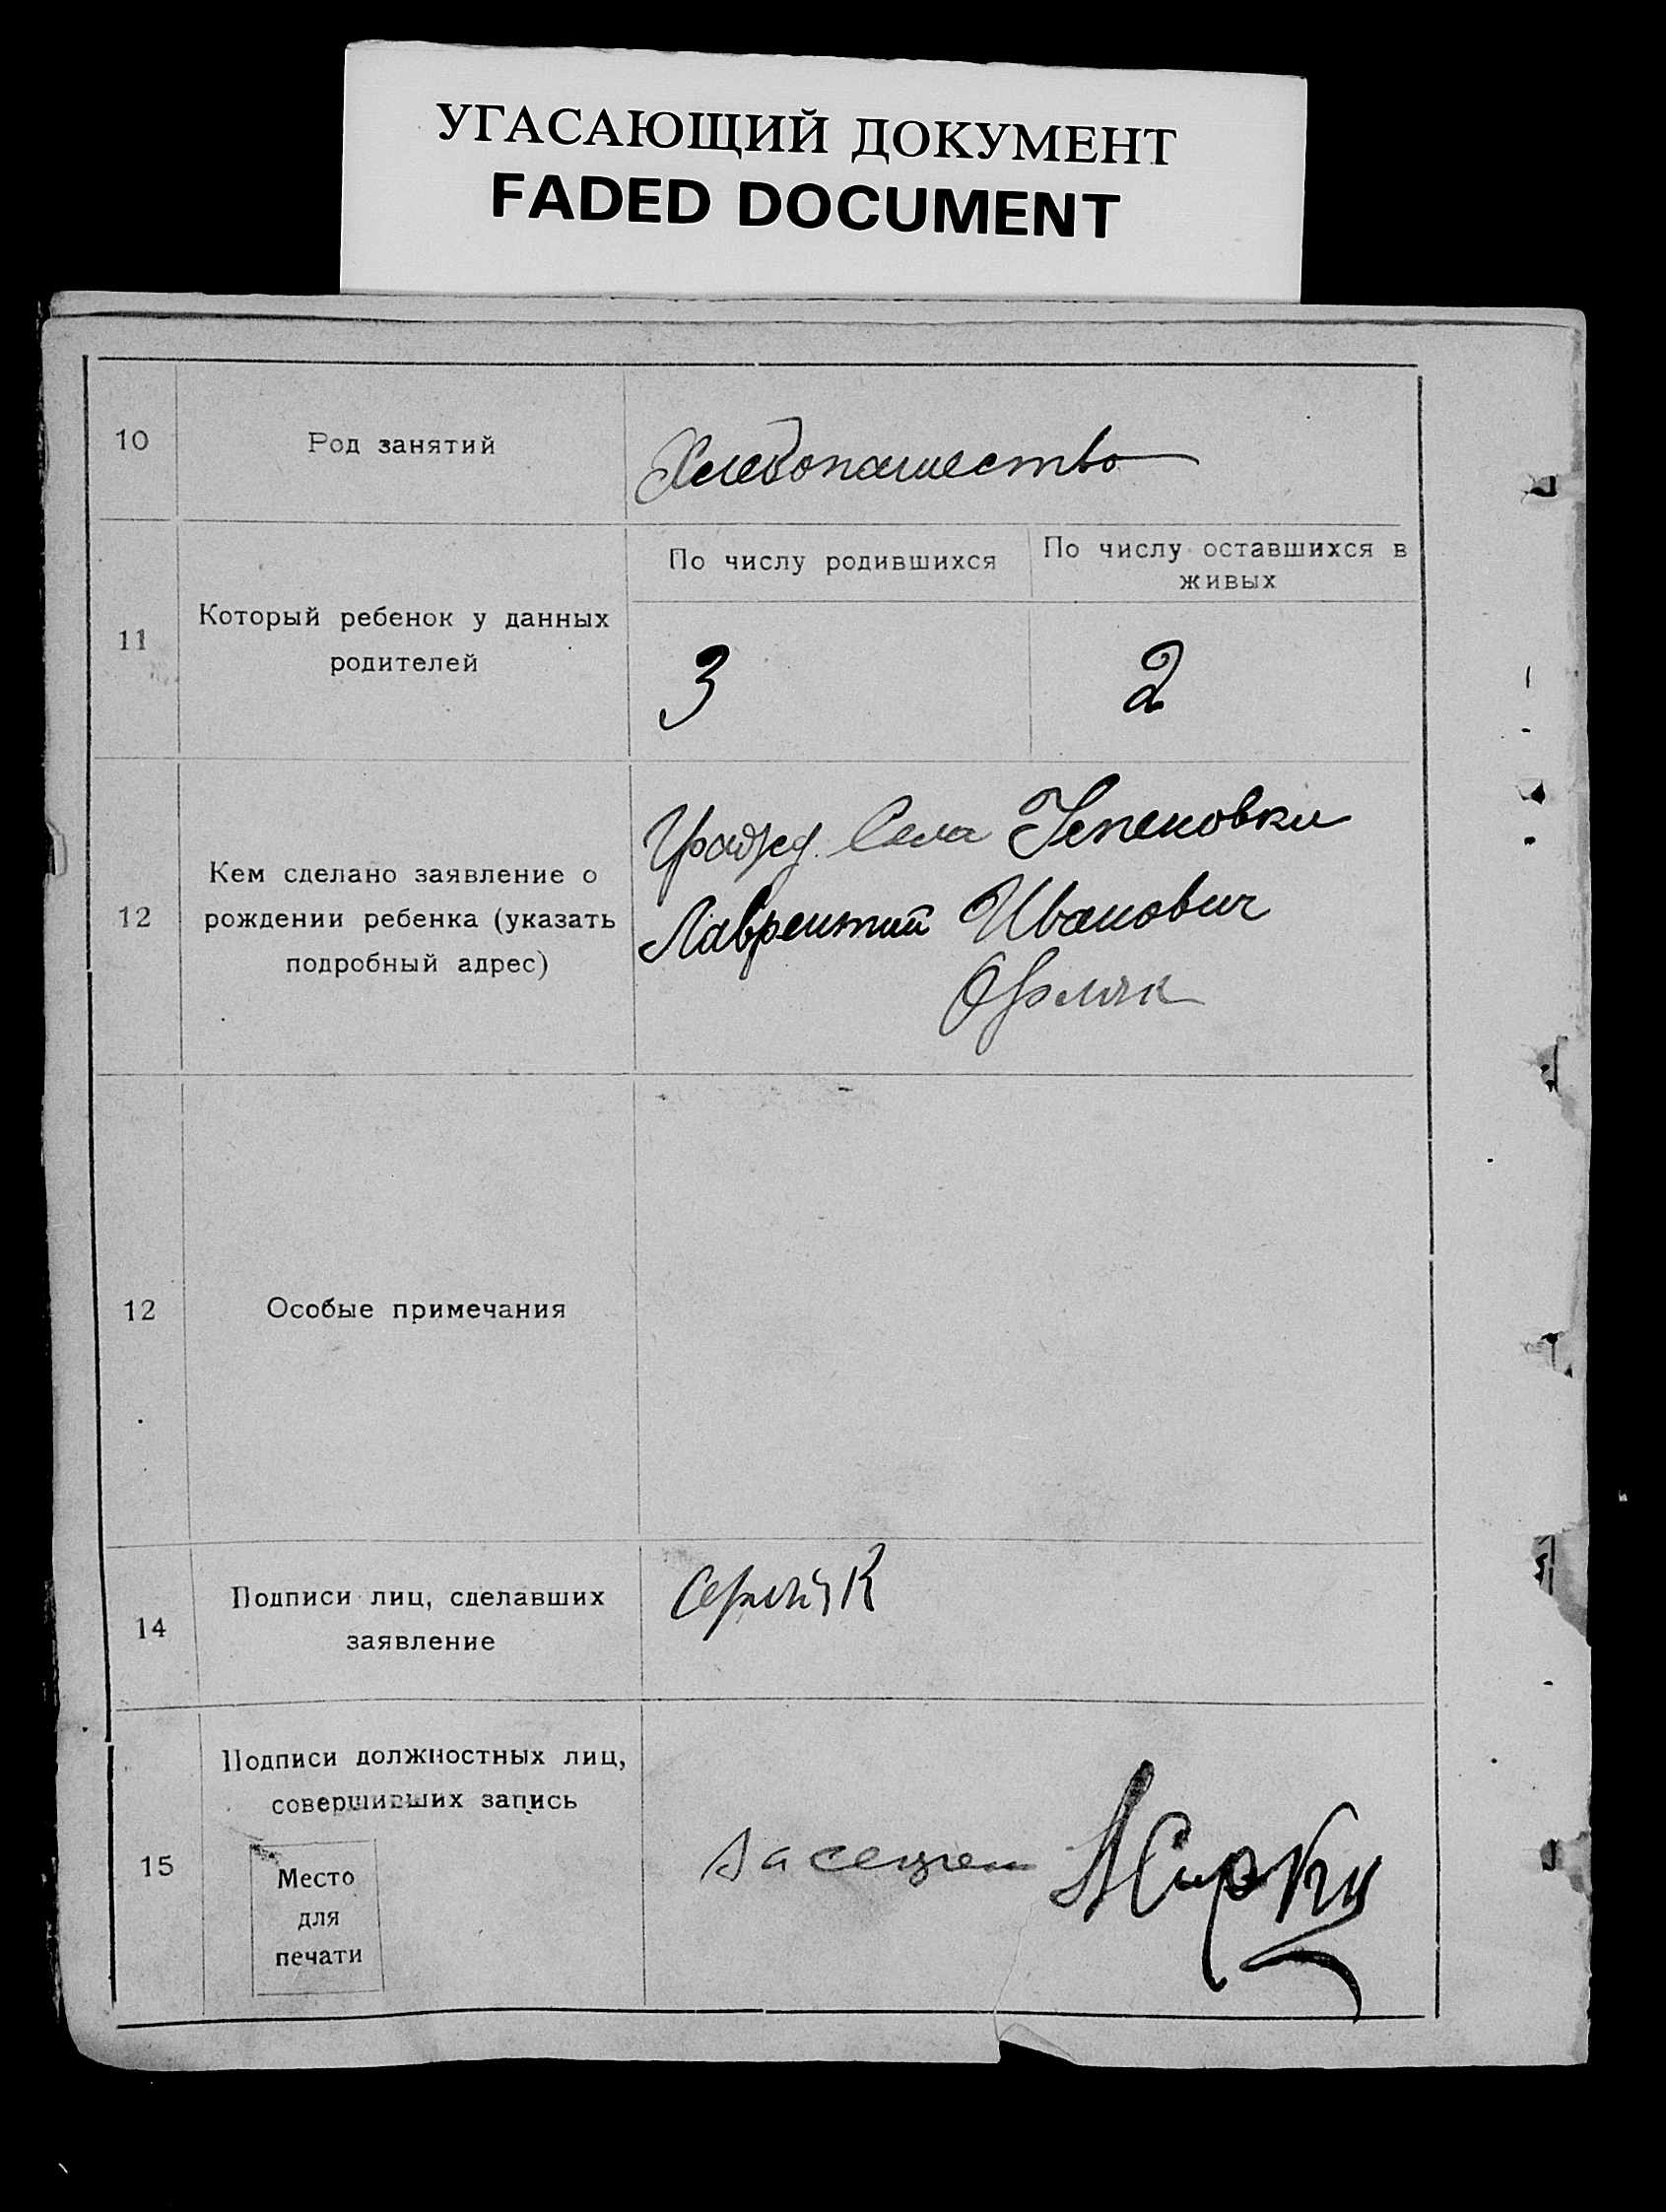 УГАСАЮЩИЙ ДОКУМЕНТ
FADED DOCUMENT
10
Род занятий
Хлебопашество
11
Который ребенок у данных
родителей
По числу родившихся
По числу оставшихся в
живых
3
2
12
Кем сделано заявление о
рождении ребенка (указать
подробный адрес)
Гражд. Села
Лаврентий Иванович
12
Особые примечания
14
Подписи лиц, сделавших
заявление
15
Подписи должностных лиц,
совершивших запись
Место
для
печати